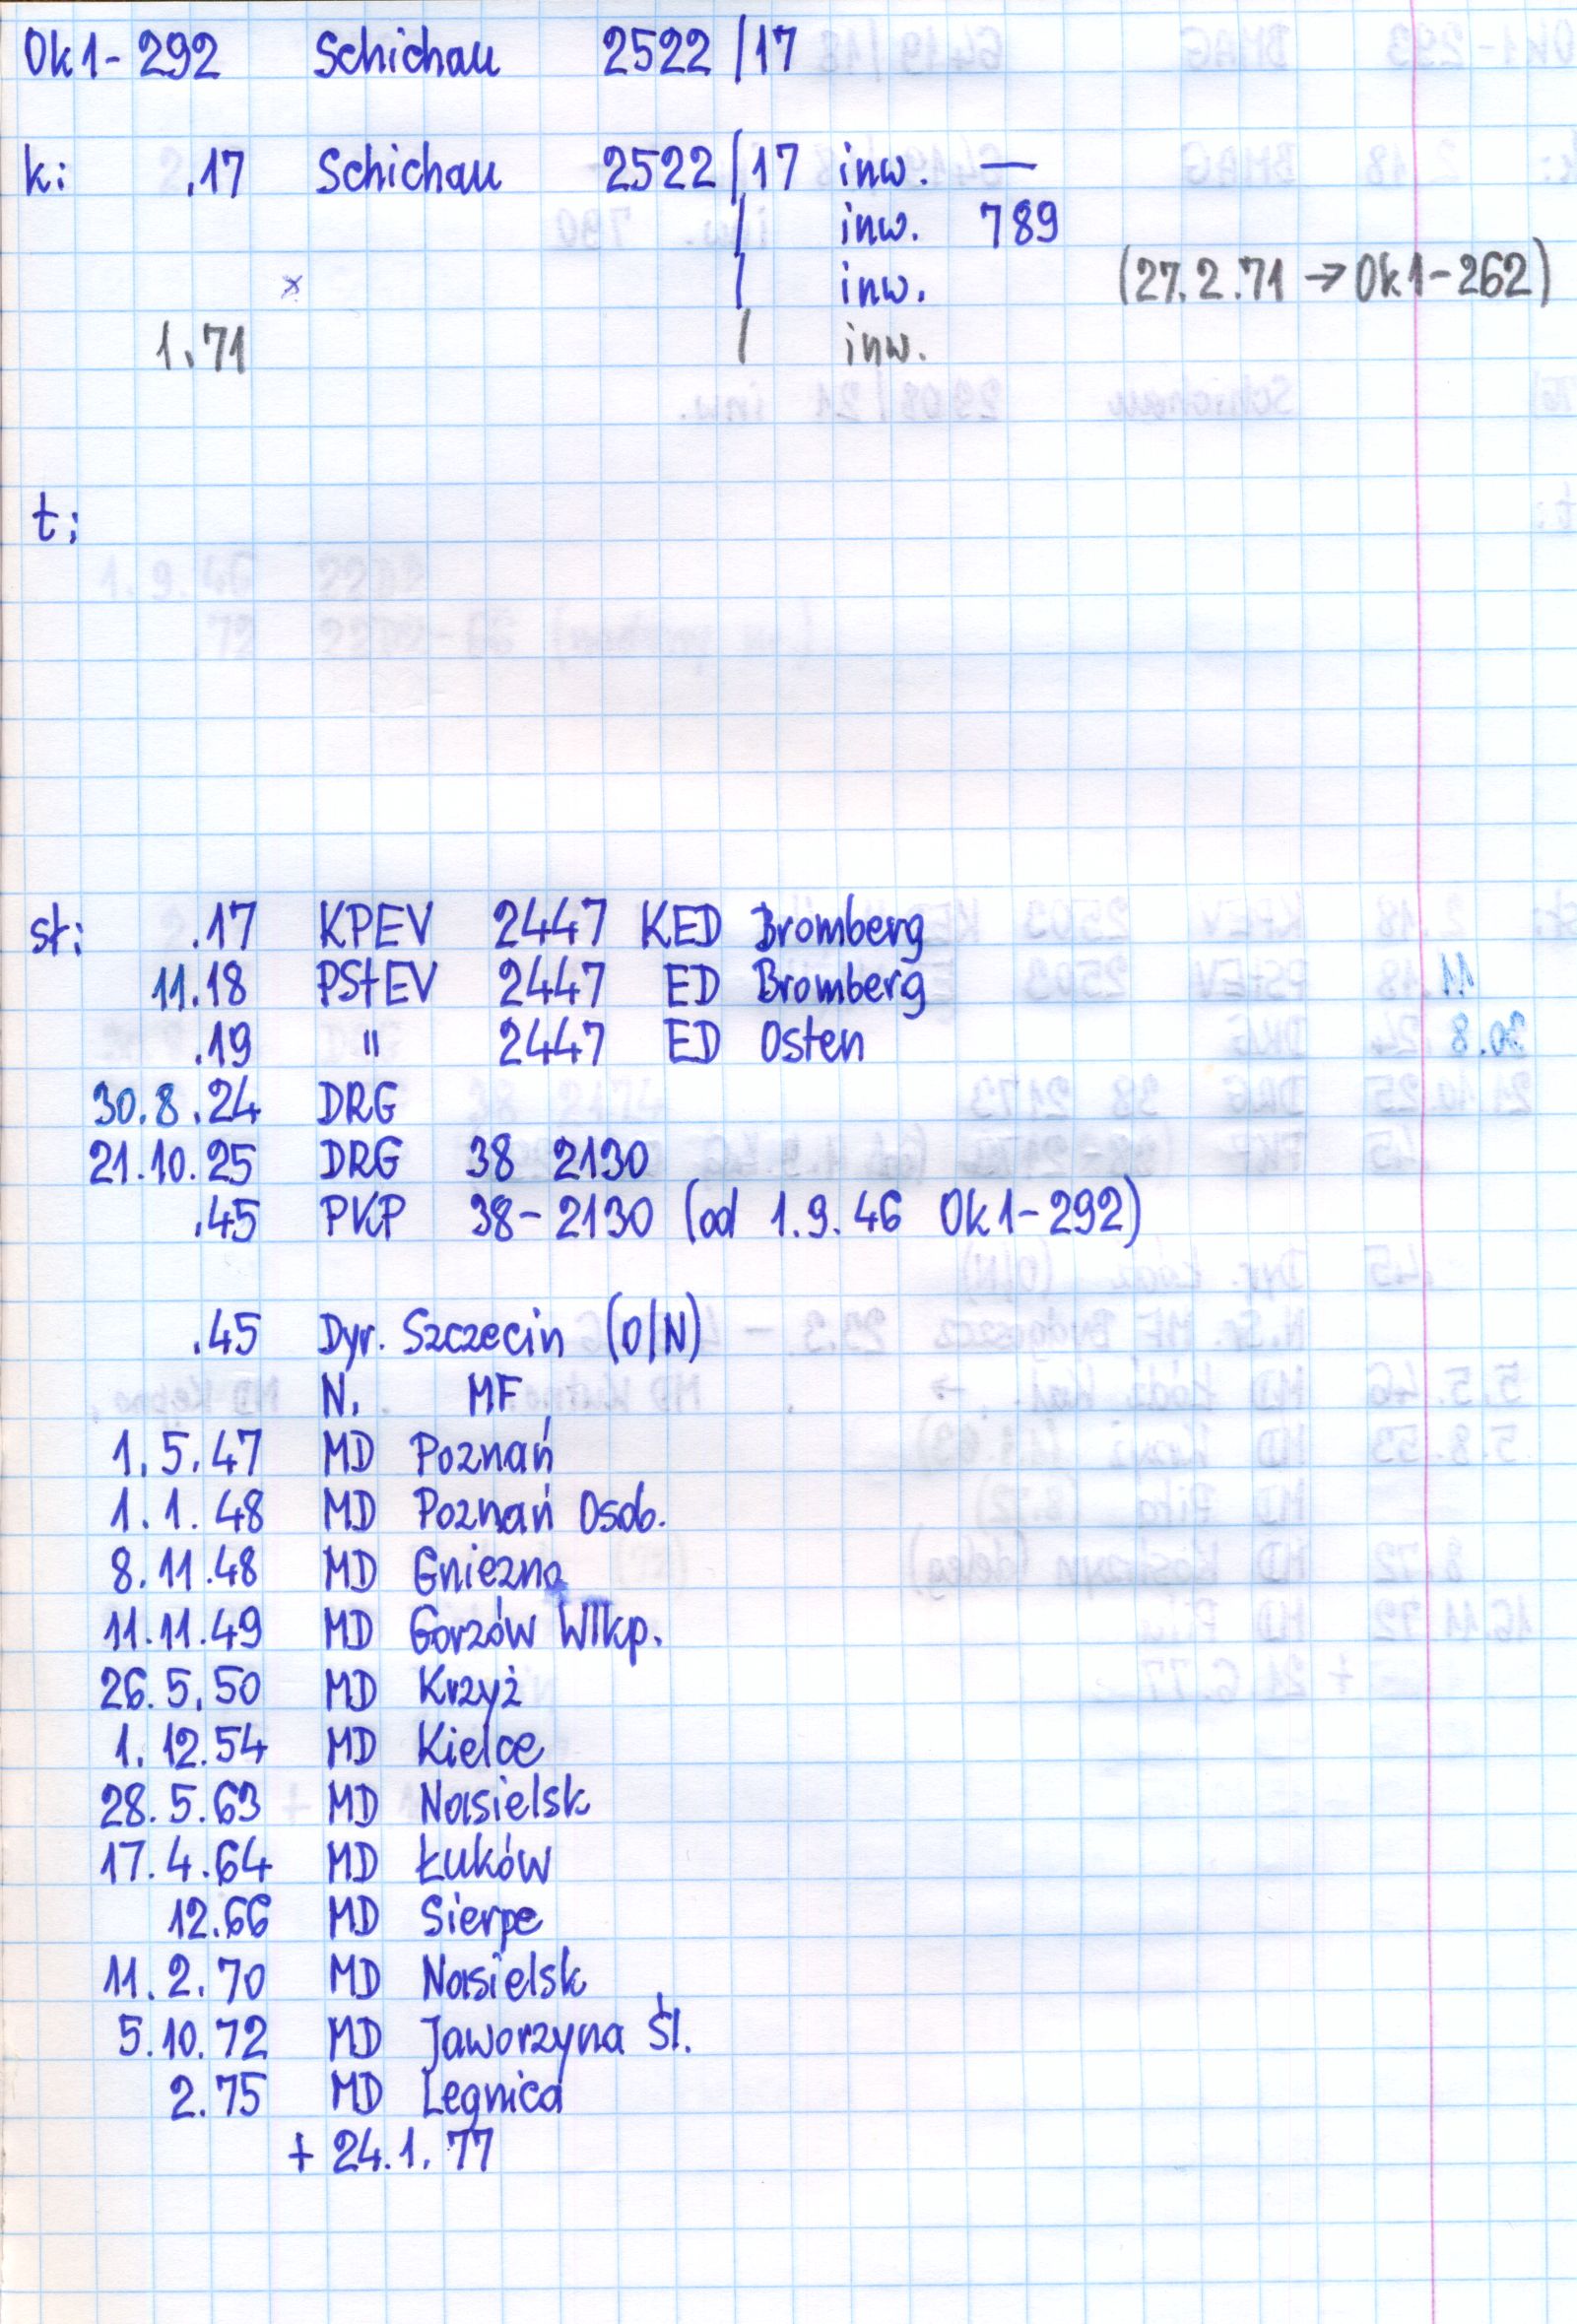 Ok1-292 Schichau 2522/17
k: .17 Schichau 2522/17 inw. —
/ inw. 789
x / inw. (27.2.71 → Ok1-262)
1.71 / inw.
t:
st: .17 KPEV 2447 KED Bromberg
11.18 PStEV 2447 ED Bromberg
.19 " 2447 ED Osten
30.8.24 DRG
21.10.25 DRG 38 2130
.45 PKP 38-2130 (od 1.9.46 Ok1-292)
.45 Dyr. Szczecin (O/N)
N. MF
1.5.47 MD Poznań
1.1.48 MD Poznań Osob.
8.11.48 MD Gniezno
11.11.49 MD Gorzów Wlkp.
26.5.50 MD Krzyż
1.12.54 MD Kielce
28.5.63 MD Nasielsk
17.4.64 MD Łuków
12.66 MD Sierpc
11.2.70 MD Nasielsk
5.10.72 MD Jaworzyna Śl.
2.75 MD Legnica
+ 24.1.77